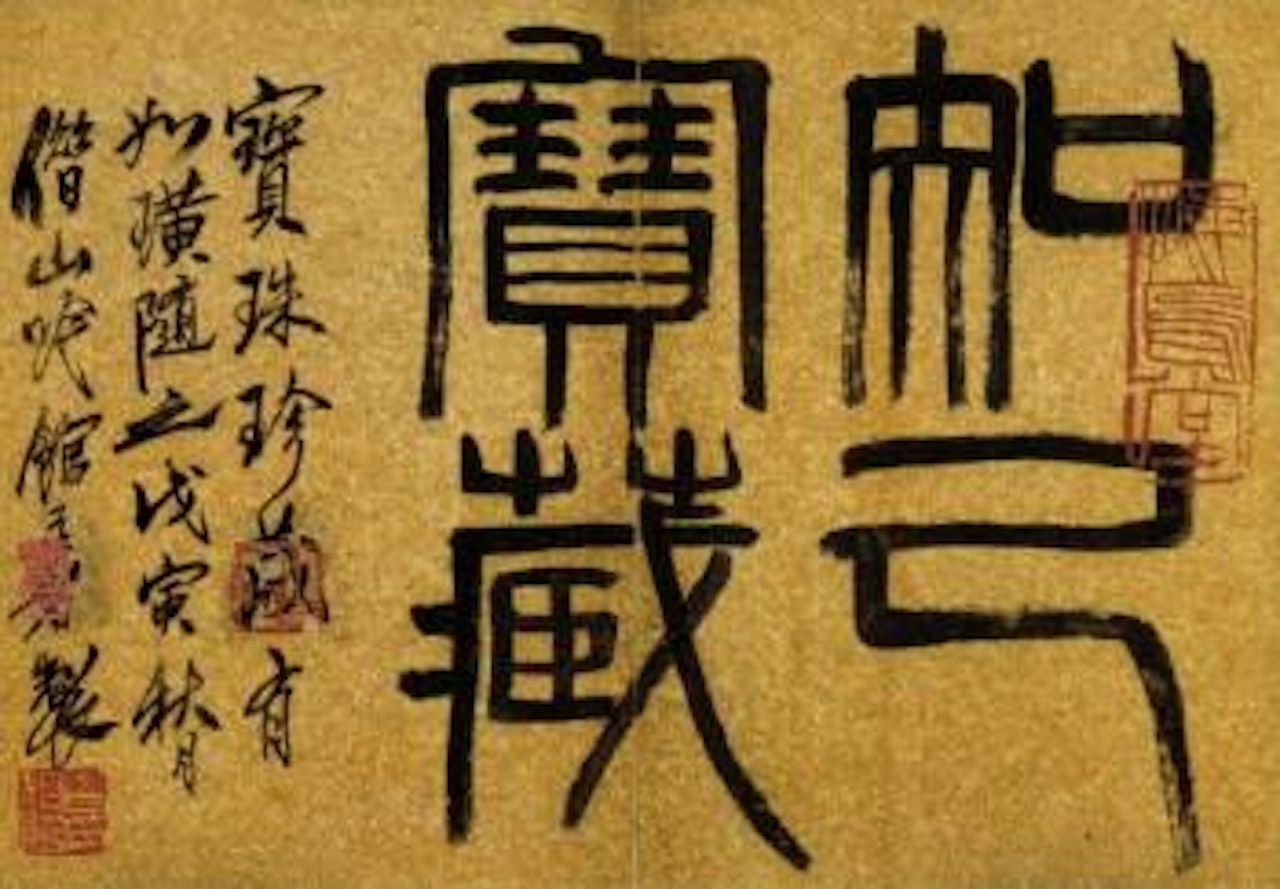 己
寶藏
寶珠珍藏有
如璜隨之戊寅秋月
借山吟館主者製